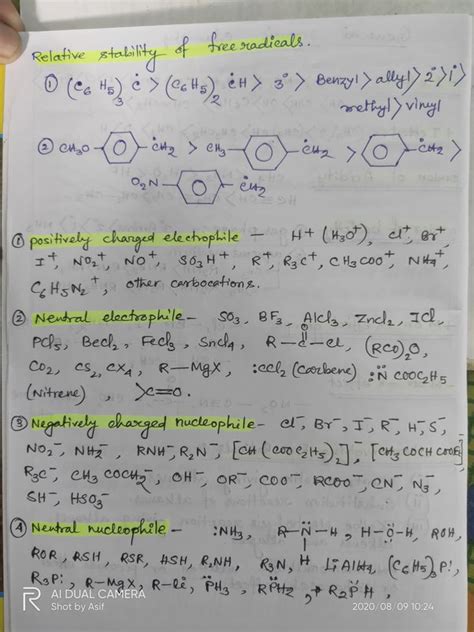 Relative stability of free radicals.
① (C6H5)3Ċ > (C6H5)2ĊH > 3° > Benzyl > allyl > 2° > 1° >
methyl > vinyl
② CH3O- -ĊH2 > CH3- -ĊH2 > -ĊH2 >
O2N- -ĊH2
① positively charged electrophile - H+ (H3O+), Cl+, Br+
I+, NO2+, NO+, SO3H+, R+, R3C+, CH3COO+, NH4+
C6H5N2+, other carbocations.
② Neutral electrophile - SO3, BF3, AlCl3, ZnCl2, ICl,
PCl5, BeCl2, FeCl3, SnCl4, R-C(=O)-Cl, (RCO)2O,
CO2, CS2, CX4, R-MgX, :CCl2 (Carbene) :N̈ COOC2H5
(Nitrene), >C=O.
③ Negatively charged nucleophile - Cl-, Br-, I-, R-, H-, S-,
NO2-, NH2-, RNH-, R2N-, [CH(COOC2H5)2]-, [CH3COCHCOOE]-
R3C-, CH3COCH2-, OH-, OR-, COO-, RCOO-, CN-, N3-,
SH-, HSO3-
④ Neutral nucleophile - :NH3, R-N̈-H, H-C̈-H, ROH,
H
ROR, RSH, RSR, HSH, R2NH, R3N, LiAlH4, (C6H5)3P:,
R3P:, R-MgX, R-Li, P̈H3, RP̈H2, R2P̈H,
AI DUAL CAMERA
Shot by Asif
2020/08/09 10:24